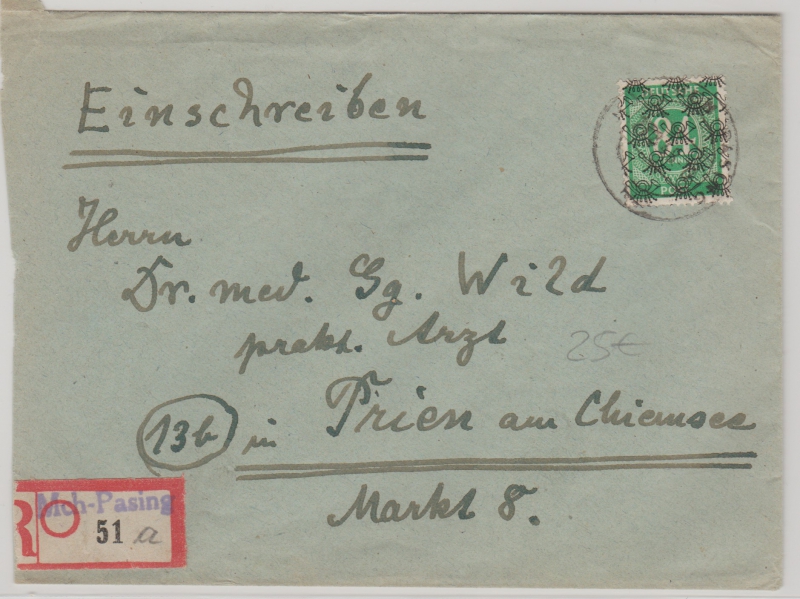 Einschreiben
Herrn
Dr. med. Gg. Wild
prakt. Arzt
25€
13b in Prien am Chiemsee
Markt 8.
Mch-Pasing
R 51 a